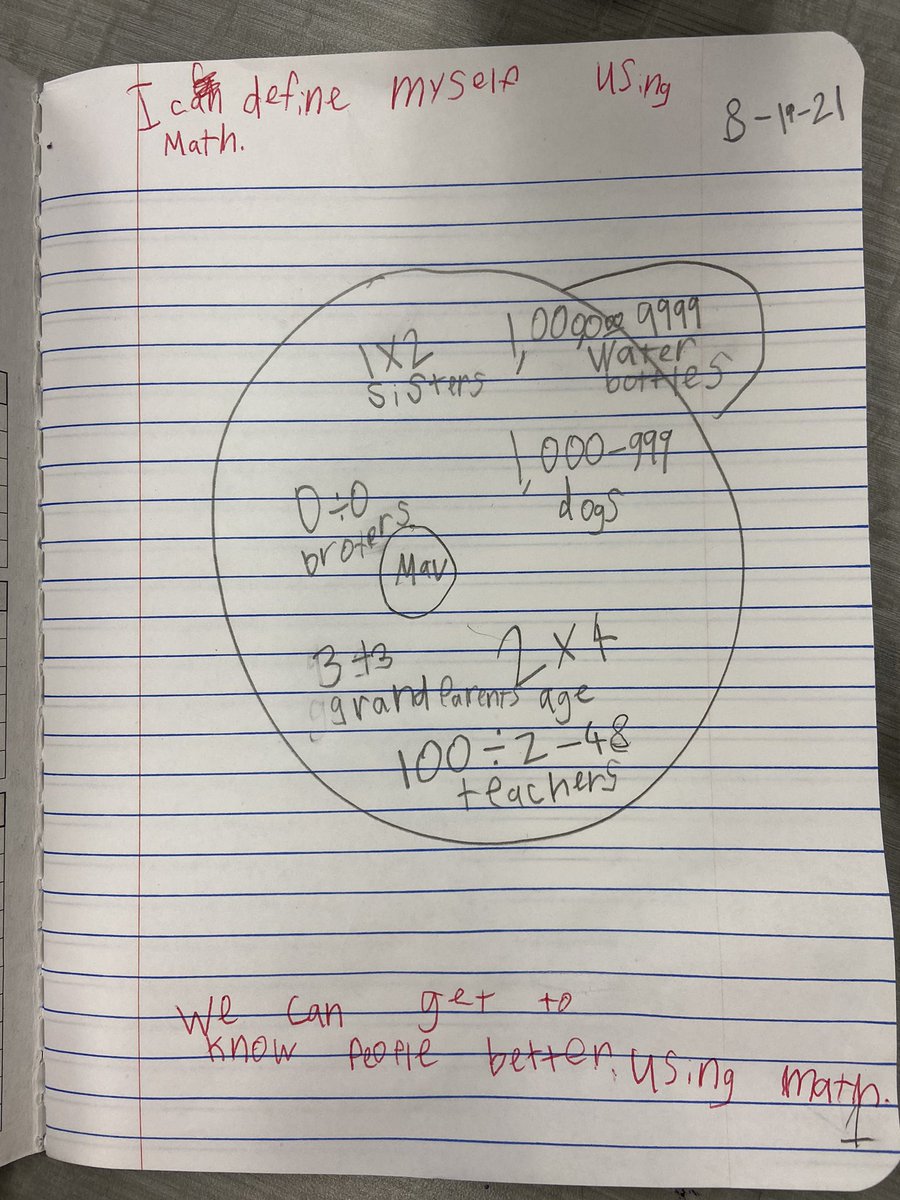 I can define myself using
Math.
8-19-21
1x2
sisters
9999
Water
bottles
1,000-999
dogs
0÷0
broters
Mav
3+3
grandparents
2x4
age
100÷2-48
teachers
We can get to
know people better using math.